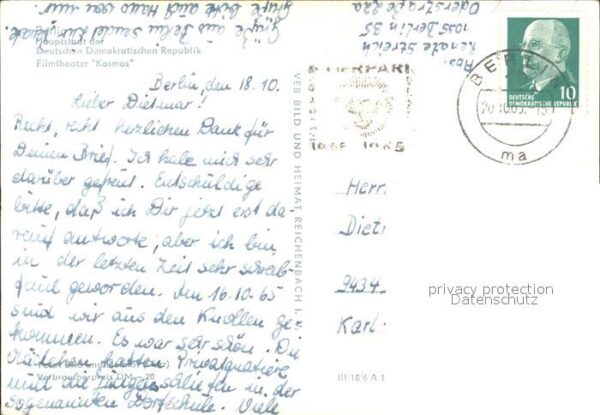 Hauptstadt der
Deutschen Demokratischen Republik
Filmtheater "Kosmos"
Berlin, den 18.10.
Lieber Dietmar!
Recht, recht herzlichen Dank für
Deinen Brief. Ich habe mich sehr
darüber gefreut. Entschuldige
bitte, daß ich Dir jetzt erst da-
rauf antworte, aber ich bin
in der letzten Zeit sehr schreib-
faul geworden. Am 16.10.65
sind wir aus den Knollen ge-
kommen. Es war sehr schön. Die
Mädchen hatten Privatquartiere
und die Jungs schliefen in der
sogenannten Dorfschule. Viele
Grüße aus Berlin sendet
Grüße bitte auch Hans von mir.
Verbraucherpreis DM -,20
VEB BILD UND HEIMAT, REICHENBACH I. V.
III 18 6 A 1
Abs.:
Renate
1055 Berlin 35
TIERPARK
1955 1965
BERLIN
ma
10
DEUTSCHE
DEMOKRATISCHE REPUBLIK
Herr
Diet
9434
Karl-
privacy protection
Datenschutz